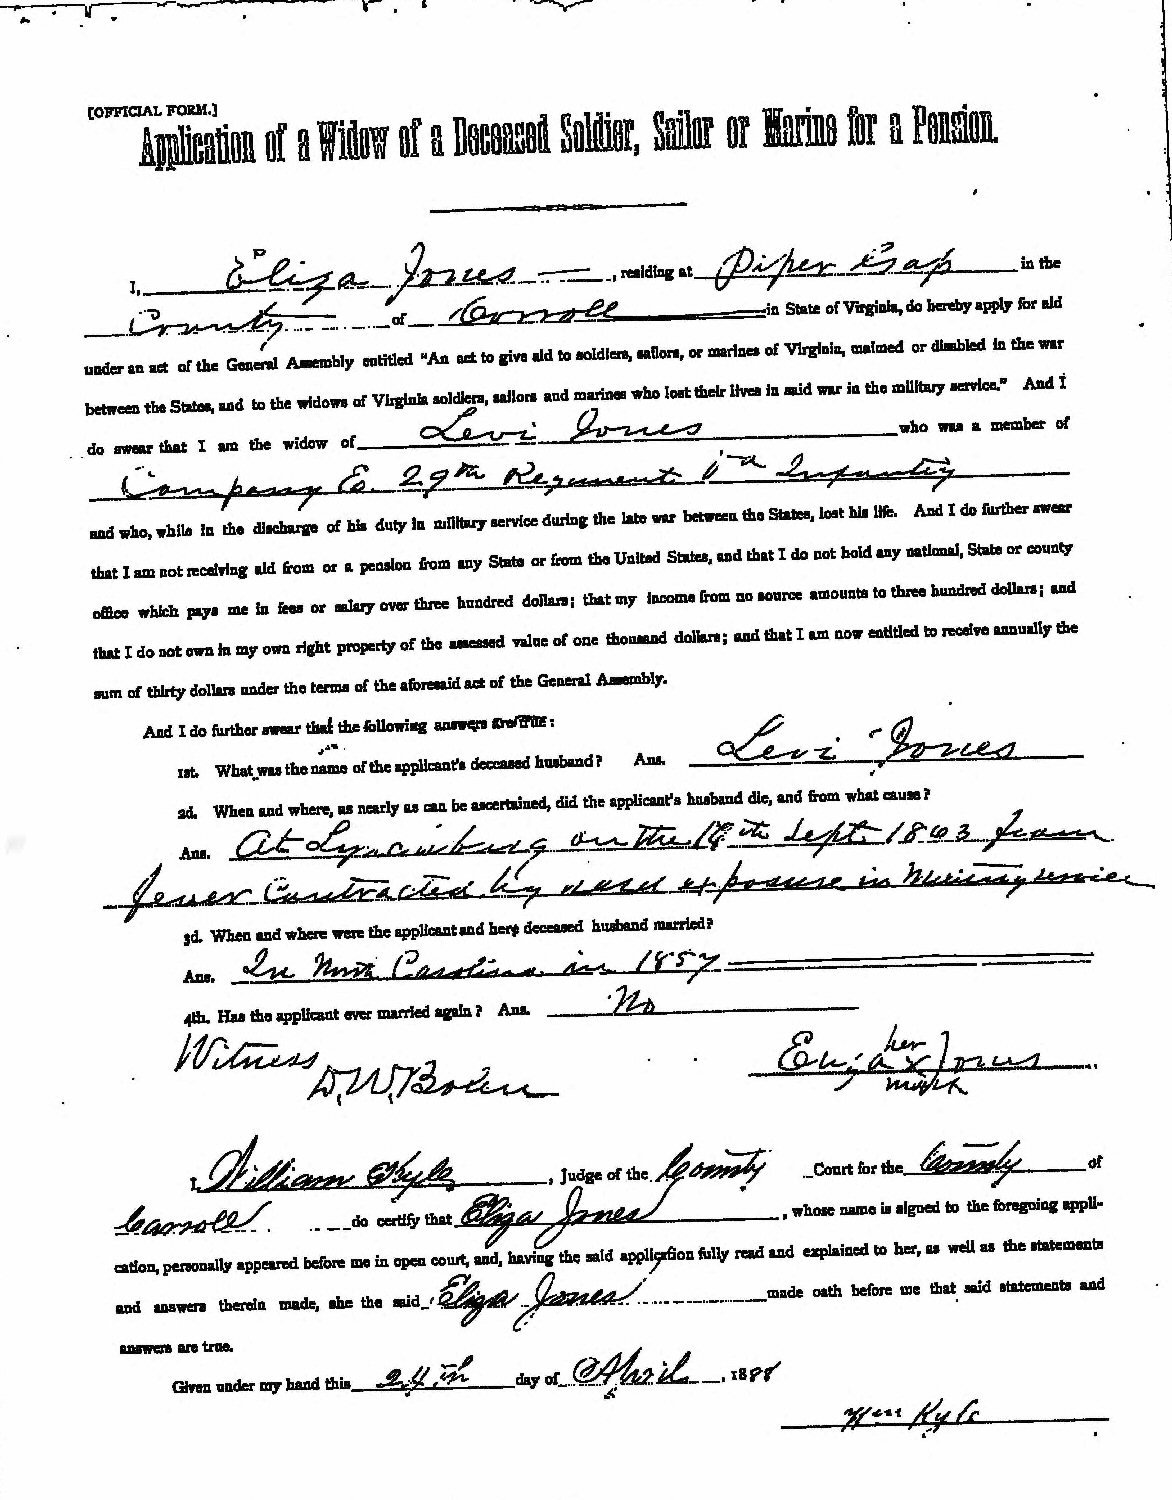 [OFFICIAL FORM.]
Application of a Widow of a Deceased Soldier, Sailor or Marine for a Pension.
I, Eliza Jones, residing at Piper Gap in the
County of Corroll in State of Virginia, do hereby apply for aid
under an act of the General Assembly entitled "An act to give aid to soldiers, sailors, or marines of Virginia, maimed or disabled in the war
between the States, and to the widows of Virginia soldiers, sailors and marines who lost their lives in said war in the military service." And I
do swear that I am the widow of Levi Jones who was a member of
Company E. 29th Regiment Va Infantry
and who, while in the discharge of his duty in military service during the late war between the States, lost his life. And I do further swear
that I am not receiving aid from or a pension from any State or from the United States, and that I do not hold any national, State or county
office which pays me in fees or salary over three hundred dollars; that my income from no source amounts to three hundred dollars; and
that I do not own in my own right property of the assessed value of one thousand dollars; and that I am now entitled to receive annually the
sum of thirty dollars under the terms of the aforesaid act of the General Assembly.
And I do further swear that the following answers are true:
1st. What was the name of the applicant's deceased husband? Ans. Levi Jones
2d. When and where, as nearly as can be ascertained, did the applicant's husband die, and from what cause?
Ans. At Lynchburg on the Sept. 1863 from
fever Contracted by exposure in service
3d. When and where were the applicant and here deceased husband married?
Ans. In North Carolina in 1857
4th. Has the applicant ever married again? Ans. No
Witness
D. W. Bolen
Eliza her x mark Jones
I, William Kyle, Judge of the County Court for the County of
Carroll do certify that Eliza Jones, whose name is signed to the foregoing appli-
cation, personally appeared before me in open court, and, having the said application fully read and explained to her, as well as the statements
and answers therein made, she the said Eliza Jones made oath before me that said statements and
answers are true.
Given under my hand this 24th day of April, 1888
Wm Kyle